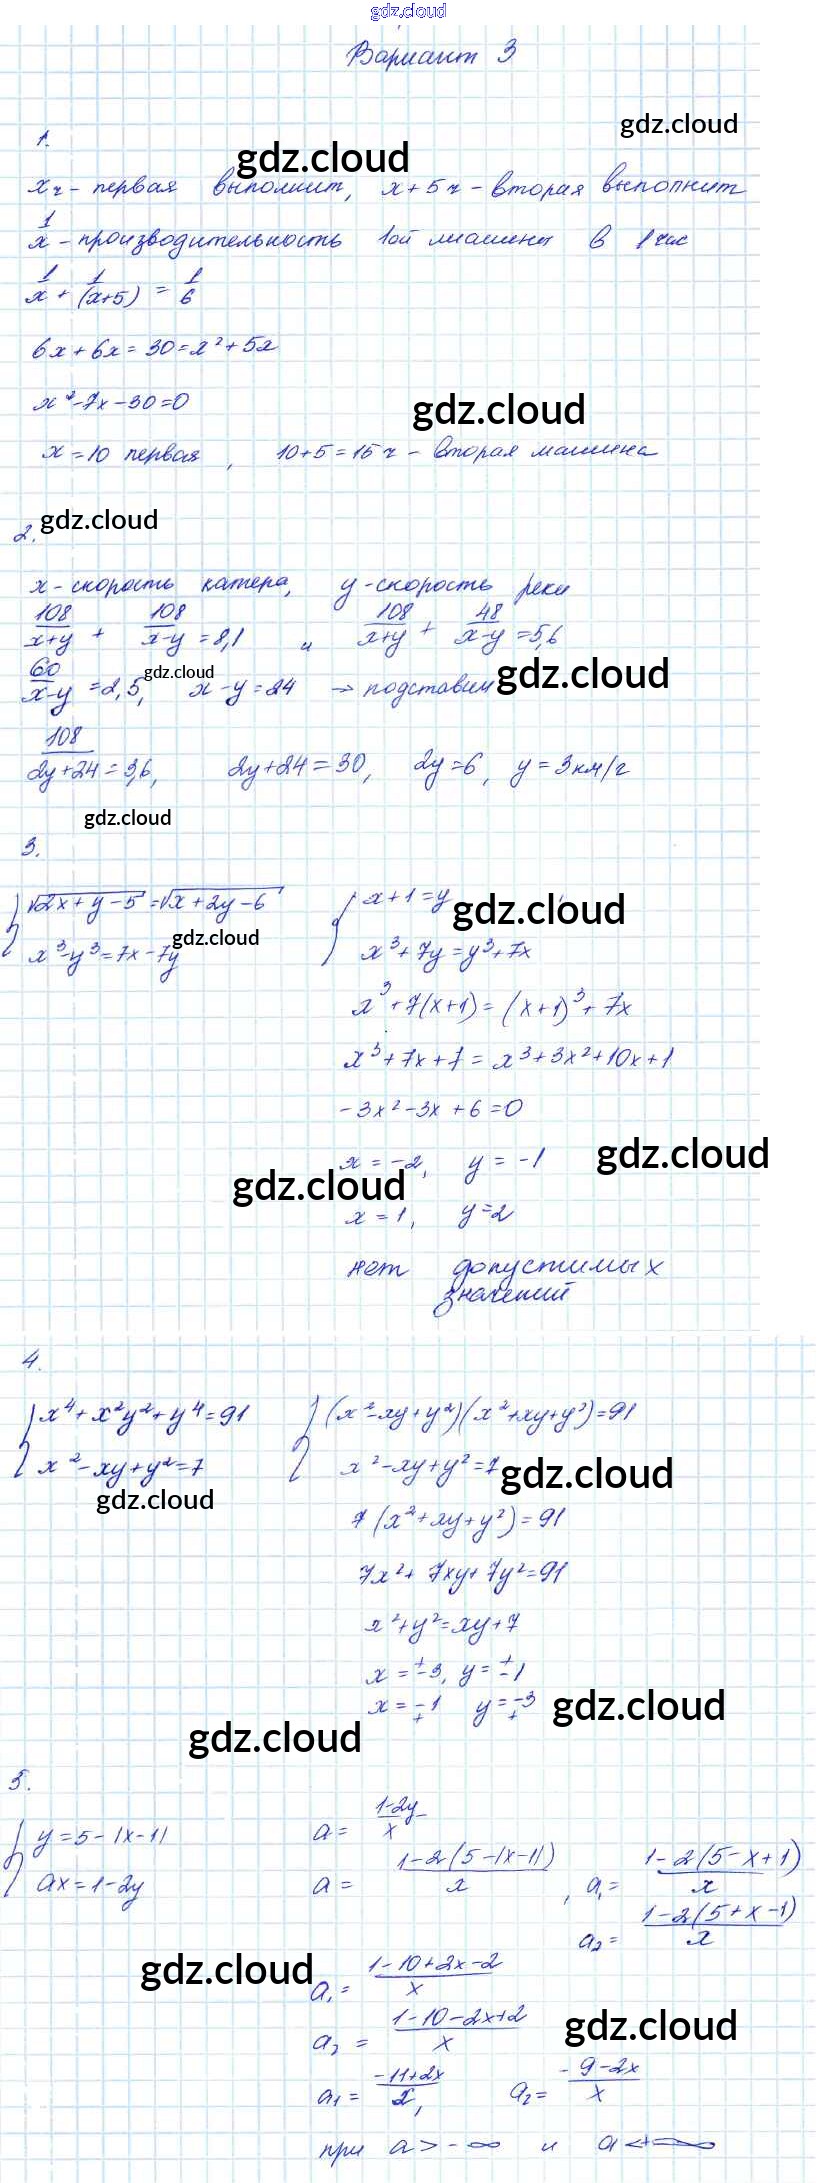 gdz.cloud
Вариант 3
gdz.cloud
1.
gdz.cloud
x ч - первая выполнит, x+5 ч - вторая выполнит
1/x - производительность 1ой машины в 1 час
1/x + 1/(x+5) = 1/6
6x+6x=30=x²+5x
x²-7x-30=0
gdz.cloud
x=10 первая, 10+5=15 ч - вторая машина
gdz.cloud
2.
x - скорость катера, y - скорость реки
108/(x+y) + 108/(x-y) = 8,1 и 108/(x+y) + 48/(x-y) = 5,6
60/(x-y) = 2,5, x-y=24 → подставим
gdz.cloud gdz.cloud
108/(2y+24) = 3,6, 2y+24=30, 2y=6, y=3км/г
gdz.cloud
3.
{ √2x+y-5 = √x+2y-6 { x+1=y
gdz.cloud
x³-y³=7x-7y x³+7y=y³+7x
gdz.cloud
x³+7(x+1)=(x+1)³+7x
x³+7x+7=x³+3x²+10x+1
-3x²-3x+6=0
x=-2, y=-1
gdz.cloud
gdz.cloud
x=1, y=2
нет допустимых
значений
4.
{ x⁴+x²y²+y⁴=91 { (x²-xy+y²)(x²+xy+y²)=91
x²-xy+y²=7 x²-xy+y²=7
gdz.cloud
gdz.cloud
7(x²+xy+y²)=91
7x²+7xy+7y²=91
x²+y²=xy+7
x=±3, y=±1
x=∓1 y=∓3
gdz.cloud
gdz.cloud
5.
{ y=5-|x-1| a= (1-2y)/x
ax=1-2y a= (1-2(5-|x-1|))/x, a₁= (1-2(5-x+1))/x
a₂= (1-2(5+x-1))/x
gdz.cloud
a₁= (1-10+2x-2)/x
a₂= (1-10-2x+2)/x
gdz.cloud
a₁= (-11+2x)/x, a₂= (-9-2x)/x
при a>-∞ и a<+∞